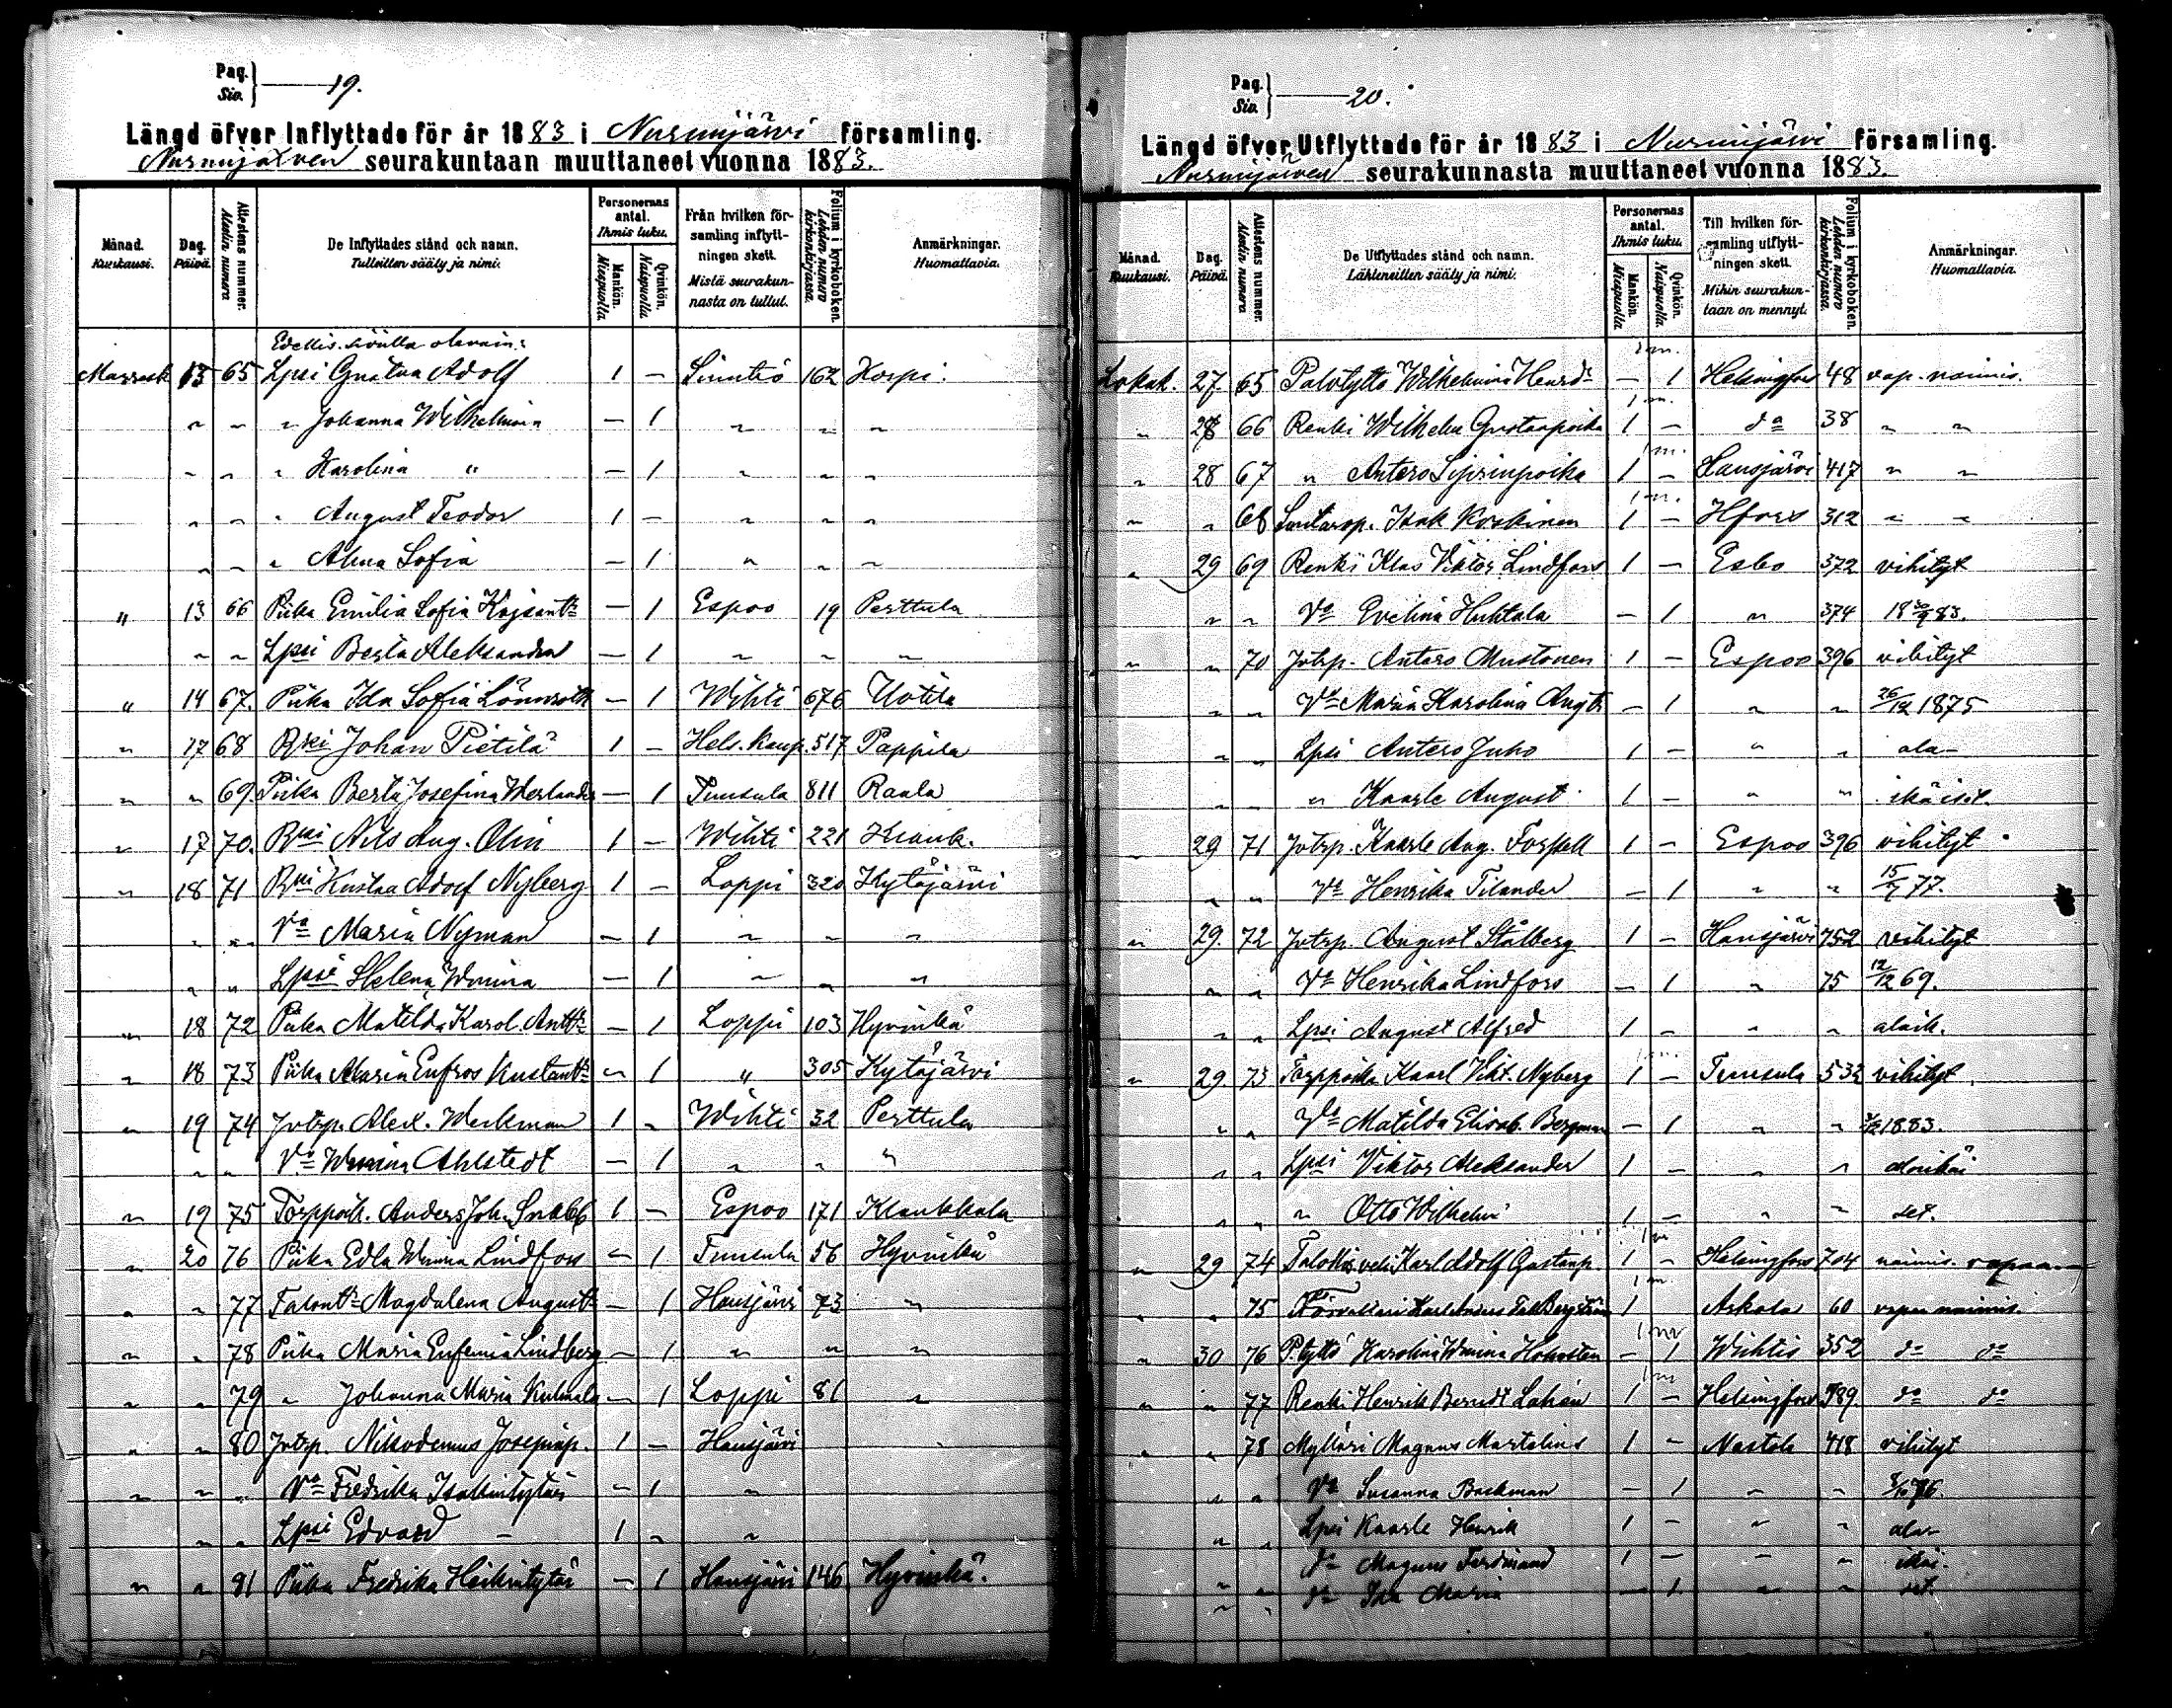 Pag. Siv. 19.
Längd öfver Inflyttade för år 1883 i Nurmijärvi församling.
Nurmijärven seurakuntaan muuttaneet vuonna 1883.
Månad. Kuukausi.
Dag. Päivä.
Attestens nummer. Atestin numero
De Inflyttades stånd och namn. Tulleitten sääty ja nimi.
Personernas antal. Ihmis luku.
Mankön. Miespuolia
Qvinkön. Naispuolia
Från hvilken församling inflyttningen skett. Mistä seurakunnasta on tullut.
Folium i kyrkoboken. Lehden numero kirkonkirjassa.
Anmärkningar. Huomattavia.
Edellis. sivulla olevain:
Marrask. 13 65 Lpsi Gustaa Adolf 1 – Siuntio 162 Korpi.
" " " Johanna Wilhelmina – 1 " " "
" " " Karolina " – 1 " " "
" " " August Teodor 1 – " " "
" " " Alma Sofia – 1 " " "
" 13 66 Piika Emilia Sofia – 1 Espoo 19 Perttula
" " Lpsi Berta Aleksandra – 1 " " "
" 14 67. Piika Ida Sofia Lönnroth – 1 Wihti 676 Uotila
" 17 68 Rki Johan Pietilä 1 – Hels. kaup. 517 Pappila
" " 69. Piika Berta Josefina – 1 Tuusula 811 Raala
" 17 70. Rki Nils Aug. Olin 1 – Wihti 221 Klauk.
" 18 71 Rki Kustaa Adolf Nyberg 1 – Loppi 320 Kytäjärvi
" " Va Maria Nyman – 1 " " "
" " Lpsi Helena Wmina – 1 " " "
" 18 72 Piika Matilda Karol. Anttr – 1 Loppi 103 Hyvinkä
" 18 73 Piika Maria Eufros Kustantr – 1 " 305 Kytäjärvi
" 19 74 Jvtrp. Alex. Werkman 1 " Wihti 32 Perttula
" " Va Wmina Ahlstedt – 1 " " "
" 19 75 Torppoik. Anders Joh. Snabb 1 – Espoo 171 Klaukkala
" 20 76 Piika Edla Wmina Lindfors – 1 Tuusula 56 Hyvinkä
" " 77 Talontr Magdalena Augusttr – 1 Hausjärvi 73 "
" " 78 Piika Maria Eufemia Lindberg – 1 " " "
" " 79 " Johanna Maria Kulmala – 1 Loppi 81 "
" " 80 Jvtrp. Nikodemus Josepinp. 1 – Hausjärvi
" " " Va Fredrika Isakintytär – 1 "
" " Lpsi Edvard – 1 – "
" " 81 Piika Fredrika Heikintytär – 1 Hausjärvi 146 Hyvinkä.
Pag. Siv. 20.
Längd öfver Utflyttade för år 1883 i Nurmijärvi församling.
Nurmijärven seurakunnasta muuttaneet vuonna 1883.
Månad. Kuukausi.
Dag. Päivä.
Attestens nummer. Atestin numero
De Utflyttades stånd och namn. Lähteneitten sääty ja nimi.
Personernas antal. Ihmis luku.
Mankön. Miespuolia
Qvinkön. Naispuolia
Till hvilken församling utflyttningen skett. Mihin seurakuntaan on mennyt.
Folium i kyrkoboken. Lehden numero kirkonkirjassa.
Anmärkningar. Huomattavia.
Lokak. 27. 65 Palvtyttö Wilhelmina Henrdr – 1 Helsingfors 48 vap. naimis.
" 28 66 Renki Wilhelm Gustaapoika 1 – do 38 " "
" 28 67 " Antero 1 – Hausjärvi 417 " "
" " 68 Isak Koskinen 1 – Hfors 312 " "
" 29 69 Renki Klas Viktor Lindfors 1 – Esbo 372 vihityt
" " Va Evelina Huhtala – 1 " 374 18 30/9 83.
" " 70 Jvtrp. Antero Mustonen 1 – Espoo 396 vihityt
" " Va Maria Karolina Augtr – 1 " " 26/12 1875
" " Lpsi Antero Juho 1 – " " ala-
" " " Kaarle August 1 – " " ikäiset.
" 29 71 Jvtrp. Kaarle Aug. Forssell 1 – Espoo 396 vihityt
" " Va Henrika Tilander – 1 " " 15/7 77.
" 29. 72 Jvtrp. August Stålberg 1 – Hausjärvi 752 vihityt
" " Va Henrika Lindfors – 1 " 75 12/12 69.
" " Lpsi August Alfred 1 – " " alaik.
" 29 73 Torppoika Kaarl Vikt. Nyberg 1 – Tuusula 533 vihityt
" " Va Matilda Elisab. Bergman – 1 " " 1883.
" " Lpsi Viktor Aleksander 1 – " " alaikäi
" " " Otto Wilhelmi 1 – " " set.
" 29 74 Karl Adolf Gustaap. 1 – Helsingfors 704 naimis. vapaa
" " 75 Bergström 1 Askola 60 vapaa naimis.
" 30 76 P.tyttö Karolina Wmina – 1 Wichtis 352 do do
" " 77 Renki Henrik Berndt 1 – Helsingfors 589. do do
" " 78 Mylläri Magnus Martelius 1 – Nastola 418 vihityt
" " Va Susanna Backman – 1 " "
" " Lpsi Kaarle Henrik 1 – " " ala-
" " do Magnus Ferdinand 1 – " " ikäi-
" " do Ida Maria – 1 " " set.